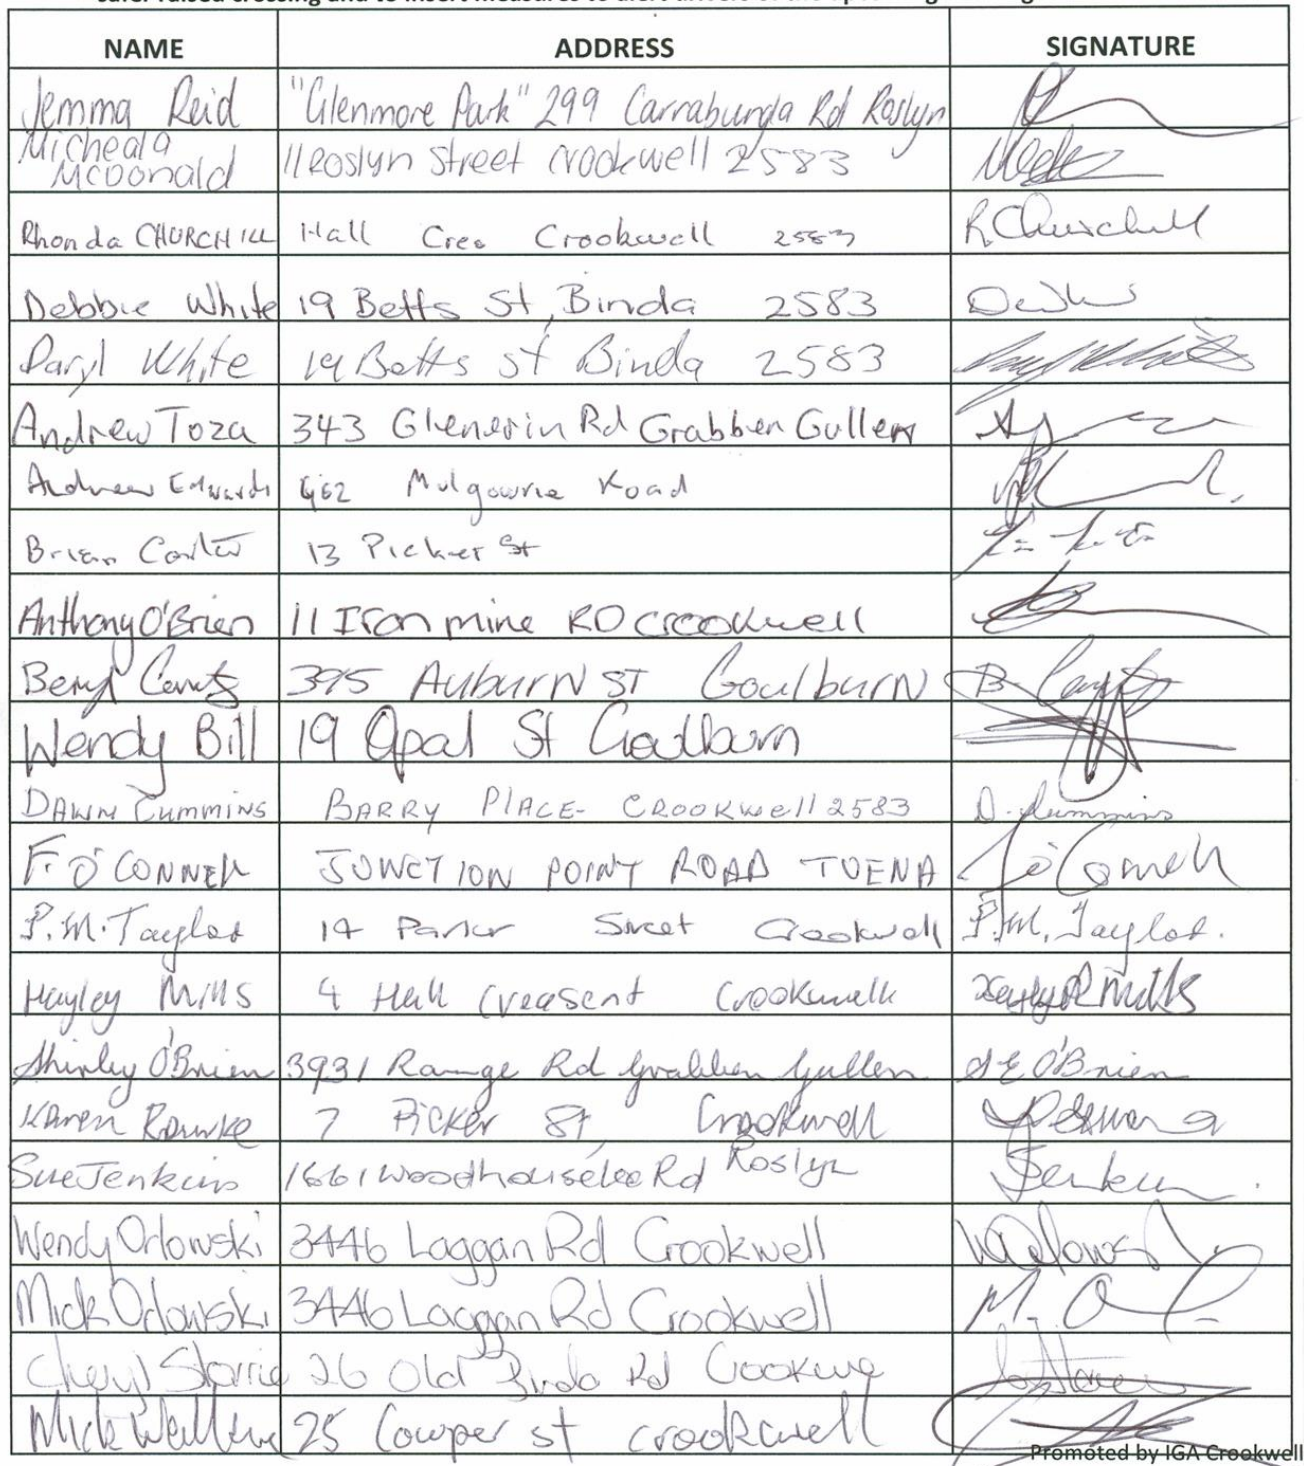 safer raised crossing and to insert measures to alert drivers of the upcoming crossing
NAME ADDRESS SIGNATURE
Jemma Reid "Glenmore Park" 299 Carrabunga Rd Roslyn
Micheala McDonald 11 Roslyn Street Crookwell 2583
Rhonda CHURCHILL Hall Cres Crookwell 2583 R Churchill
Debbie White 19 Betts St, Binda 2583
Daryl White 19 Betts st Binda 2583
Andrew Toza 343 Glenerin Rd Grabben Gullen
Andrew Edwards Mulgowrie Road
Brian Carter 13 Picker St
Anthony O'Brien 11 Iron mine RD crookwell
Beryl 395 AUBURN ST Goulburn B.
Wendy Bill 19 Opal St Goulburn
DAWN CUMMINS BARRY PLACE- CROOKWell 2583 D. Cummins
F. O'CONNELL JUNCTION POINT ROAD TUENA O'Connell
P.M. Taylor 14 Parker Street Crookwell P.M. Taylor.
Hayley Mills 4 Hall Creasent Crookwell Hayley Mills
Shirley O'Brien 3931 Range Rd Grabben Gullen S E O'Brien
Karen Rourke 7 Picker St, Crookwell
Sue Jenkins 1661 Woodhouselee Rd Roslyn SJenkins.
Wendy Orlowski 3446 Laggan Rd Crookwell WOrlowski
Mick Orlowski 3446 Laggan Rd Crookwell M. O
Cheryl Storrie 26 Old Binda Rd Crookwe
Mick 25 Cowper st crookwell
Promoted by IGA Crookwell